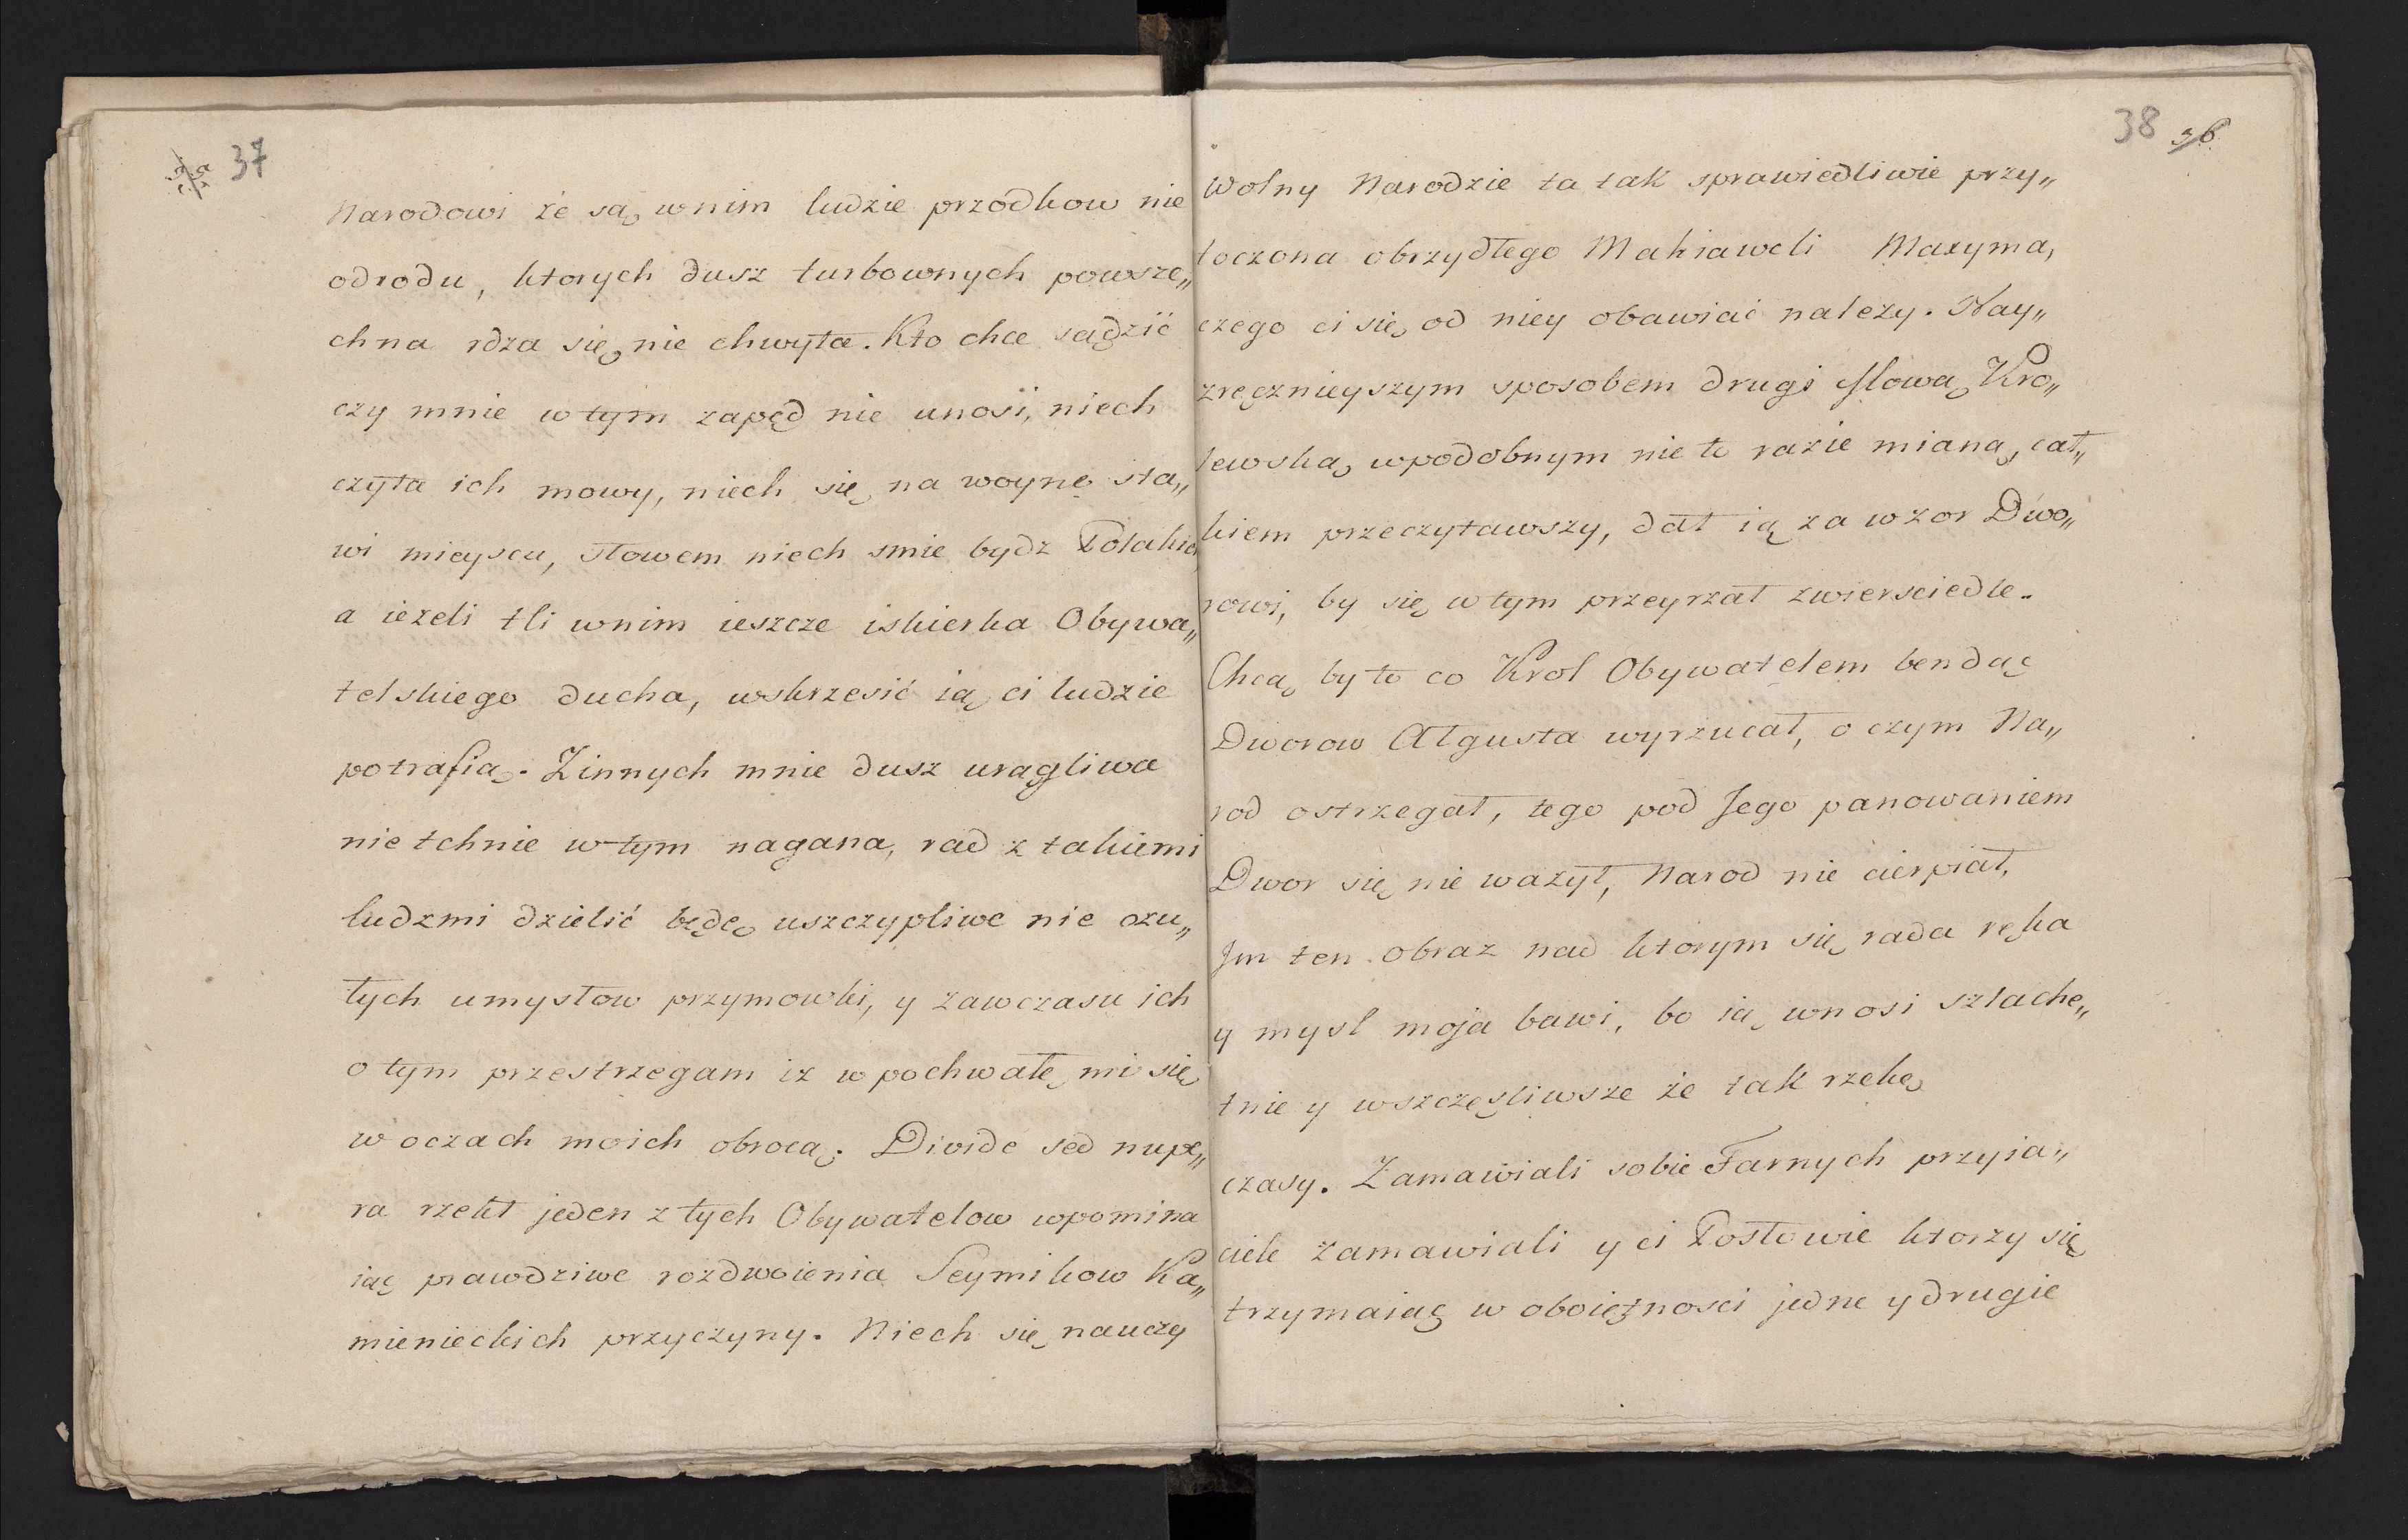 35 37
Narodowi że są wnim ludzie przodkow nie
odrodu, ktorych dusz turbownych powsze„
chna rdza się nie chwyta. Kto chce sądzić
czy mnie w tym zapęd nie unosi, niech
czyta ich mowy, niech się na woynę sta„
wi mieyscu, słowem niech smie bydz Polakie
a ieżeli tli wnim ieszcze iskierka Obywa„
telskiego ducha, wskrzesić ią ci ludzie
potrafią. Zinnych mnie dusz urągliwa
nie tchnie w tym nagana, rad z takiemi
ludzmi dzielić będę uszczypliwe nie czu„
łych umysłow przymowki, y zawczasu ich
o tym przestrzegam iz w pochwałę mi się
w oczach moich obrocą. Divide sed nupe„
ra rzekł jeden z tych Obywatelow wpomina
iąc prawdziwe rozdwoienia Seymikow Ka„
mienieckich przyczyny. Niech się nauczy
38 36
Wolny Narodzie ta tak sprawiedliwie przy„
toczona obrzydłego Makiaweli Maxyma,
czego ci się od niey obawiać należy. Nay„
zręcznieyszym sposobem drugi Mową Kro„
lewską wpodobnym nie to razie mianą, cał„
kiem przeczytawszy, dał ią za wzor Dwo„
rowi, by się w tym przeyrzał zwierściedle.
Chcą by to co Krol Obywatelem bendąc
Dworow Atgusta wyrzucał, o czym Na„
rod ostrzegał, tego pod Jego panowaniem
Dwor się nie ważył, Narod nie cierpiał,
Jm ten obraz nad ktorym się rada ręka
y mysl moja bawi, bo ią wnosi szlache„
tnie y wszczęsliwsze że tak rzekę
czasy. Zamawiali sobie Farnych przyia„
ciele zamawiali y ci Posłowie ktorzy się
trzymaiąc w oboiętnosci jedne y drugie